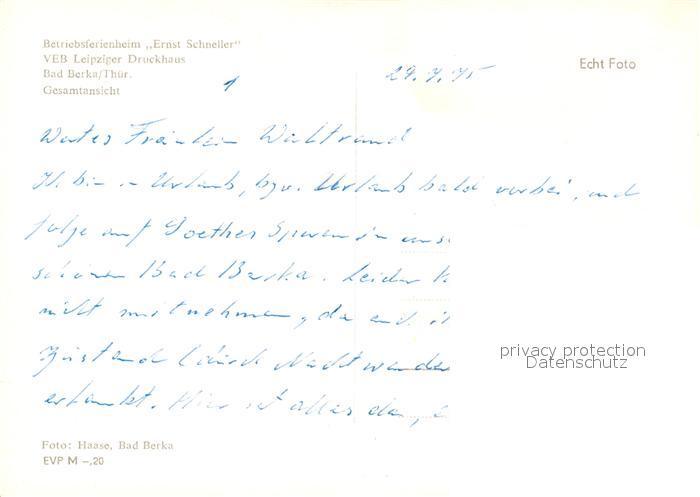 Betriebsferienheim „Ernst Schneller“
VEB Leipziger Druckhaus
Bad Berka/Thür.
Gesamtansicht
1
29.7.75
Echt Foto
Wertes Fräulein Waltraud
Ich bin in Urlaub, bzw. Urlaub bald vorbei, und
folge auf Goethes Spuren in uns
schönen Bad Berka. Leider k
nicht mitnehmen, da auch i
Zustand durch Nachtwander
erkrankt. Hier ist alles da,
privacy protection
Datenschutz
Foto: Haase, Bad Berka
EVP M –,20